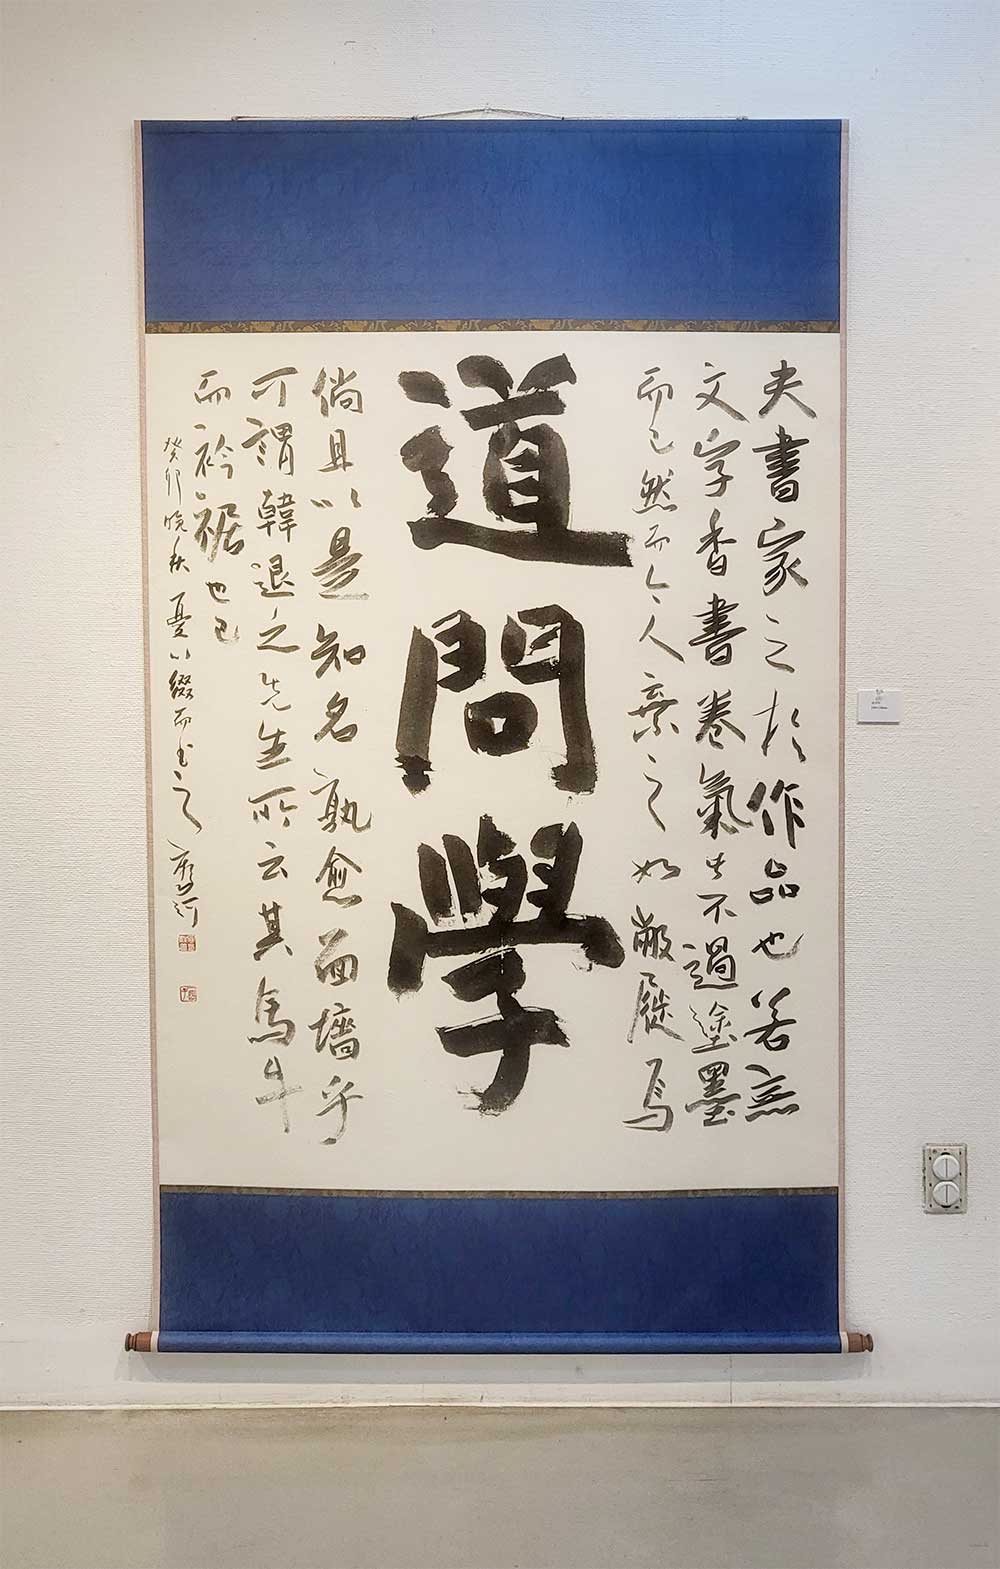 夫書家之於作品也若無
文字香書卷氣不過塗墨
而已然而今人棄之如敝屣焉
道問學
倘且以是知名孰愈面墻乎
可謂韓退之先生所云其馬牛
而衿裾也已
癸卯晚秋憂以綴而書之